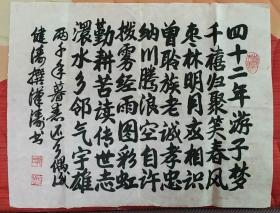 四十二年游子梦
千禧归聚笑春风
枣林明月应相识
曾聆族老诚孝忠
纳川腾浪空自许
拨雾经雨图彩虹
勤耕苦读传世志
潩水乡邻气宇雄
丙子年暮春还乡偶成
继儒撰 泽儒书